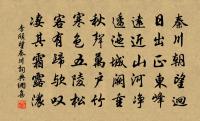 秦川朝望迥
日出正東峰
遠近山河淨
逶迤城闕重
秋聲萬戶竹
寒色五陵松
客有歸歟嘆
淒其霜露濃
李頎望秦川